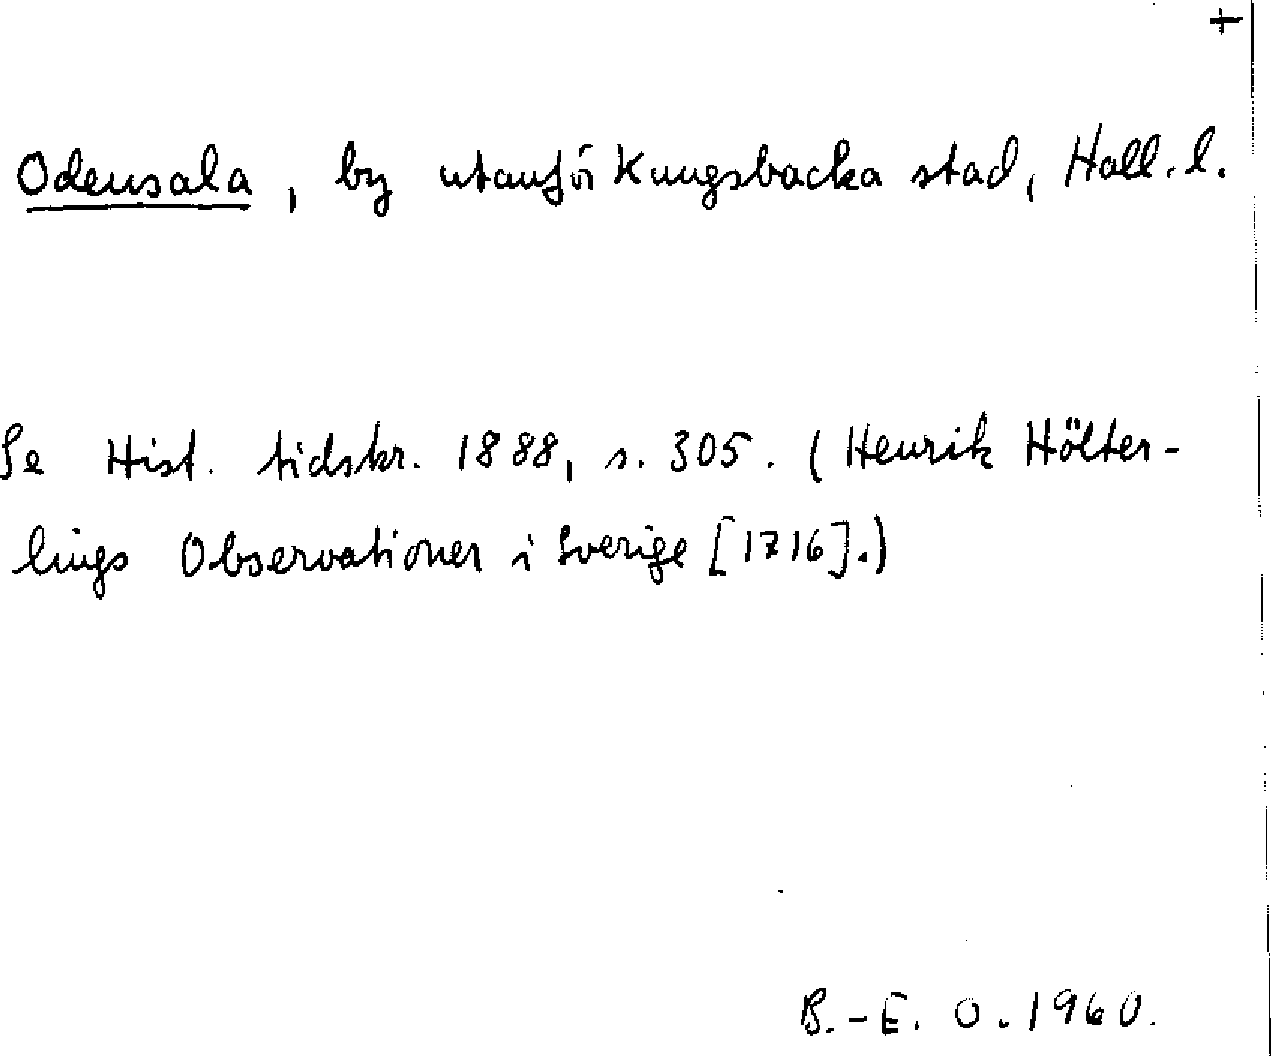 +
Odensala, by utanför Kungsbacka stad, Hall. l.
Se Hist. tidskr. 1888, s. 305. (Henrik Hölter-
lings Observationer i Sverige [1716].)
B.-E. O. 1960.